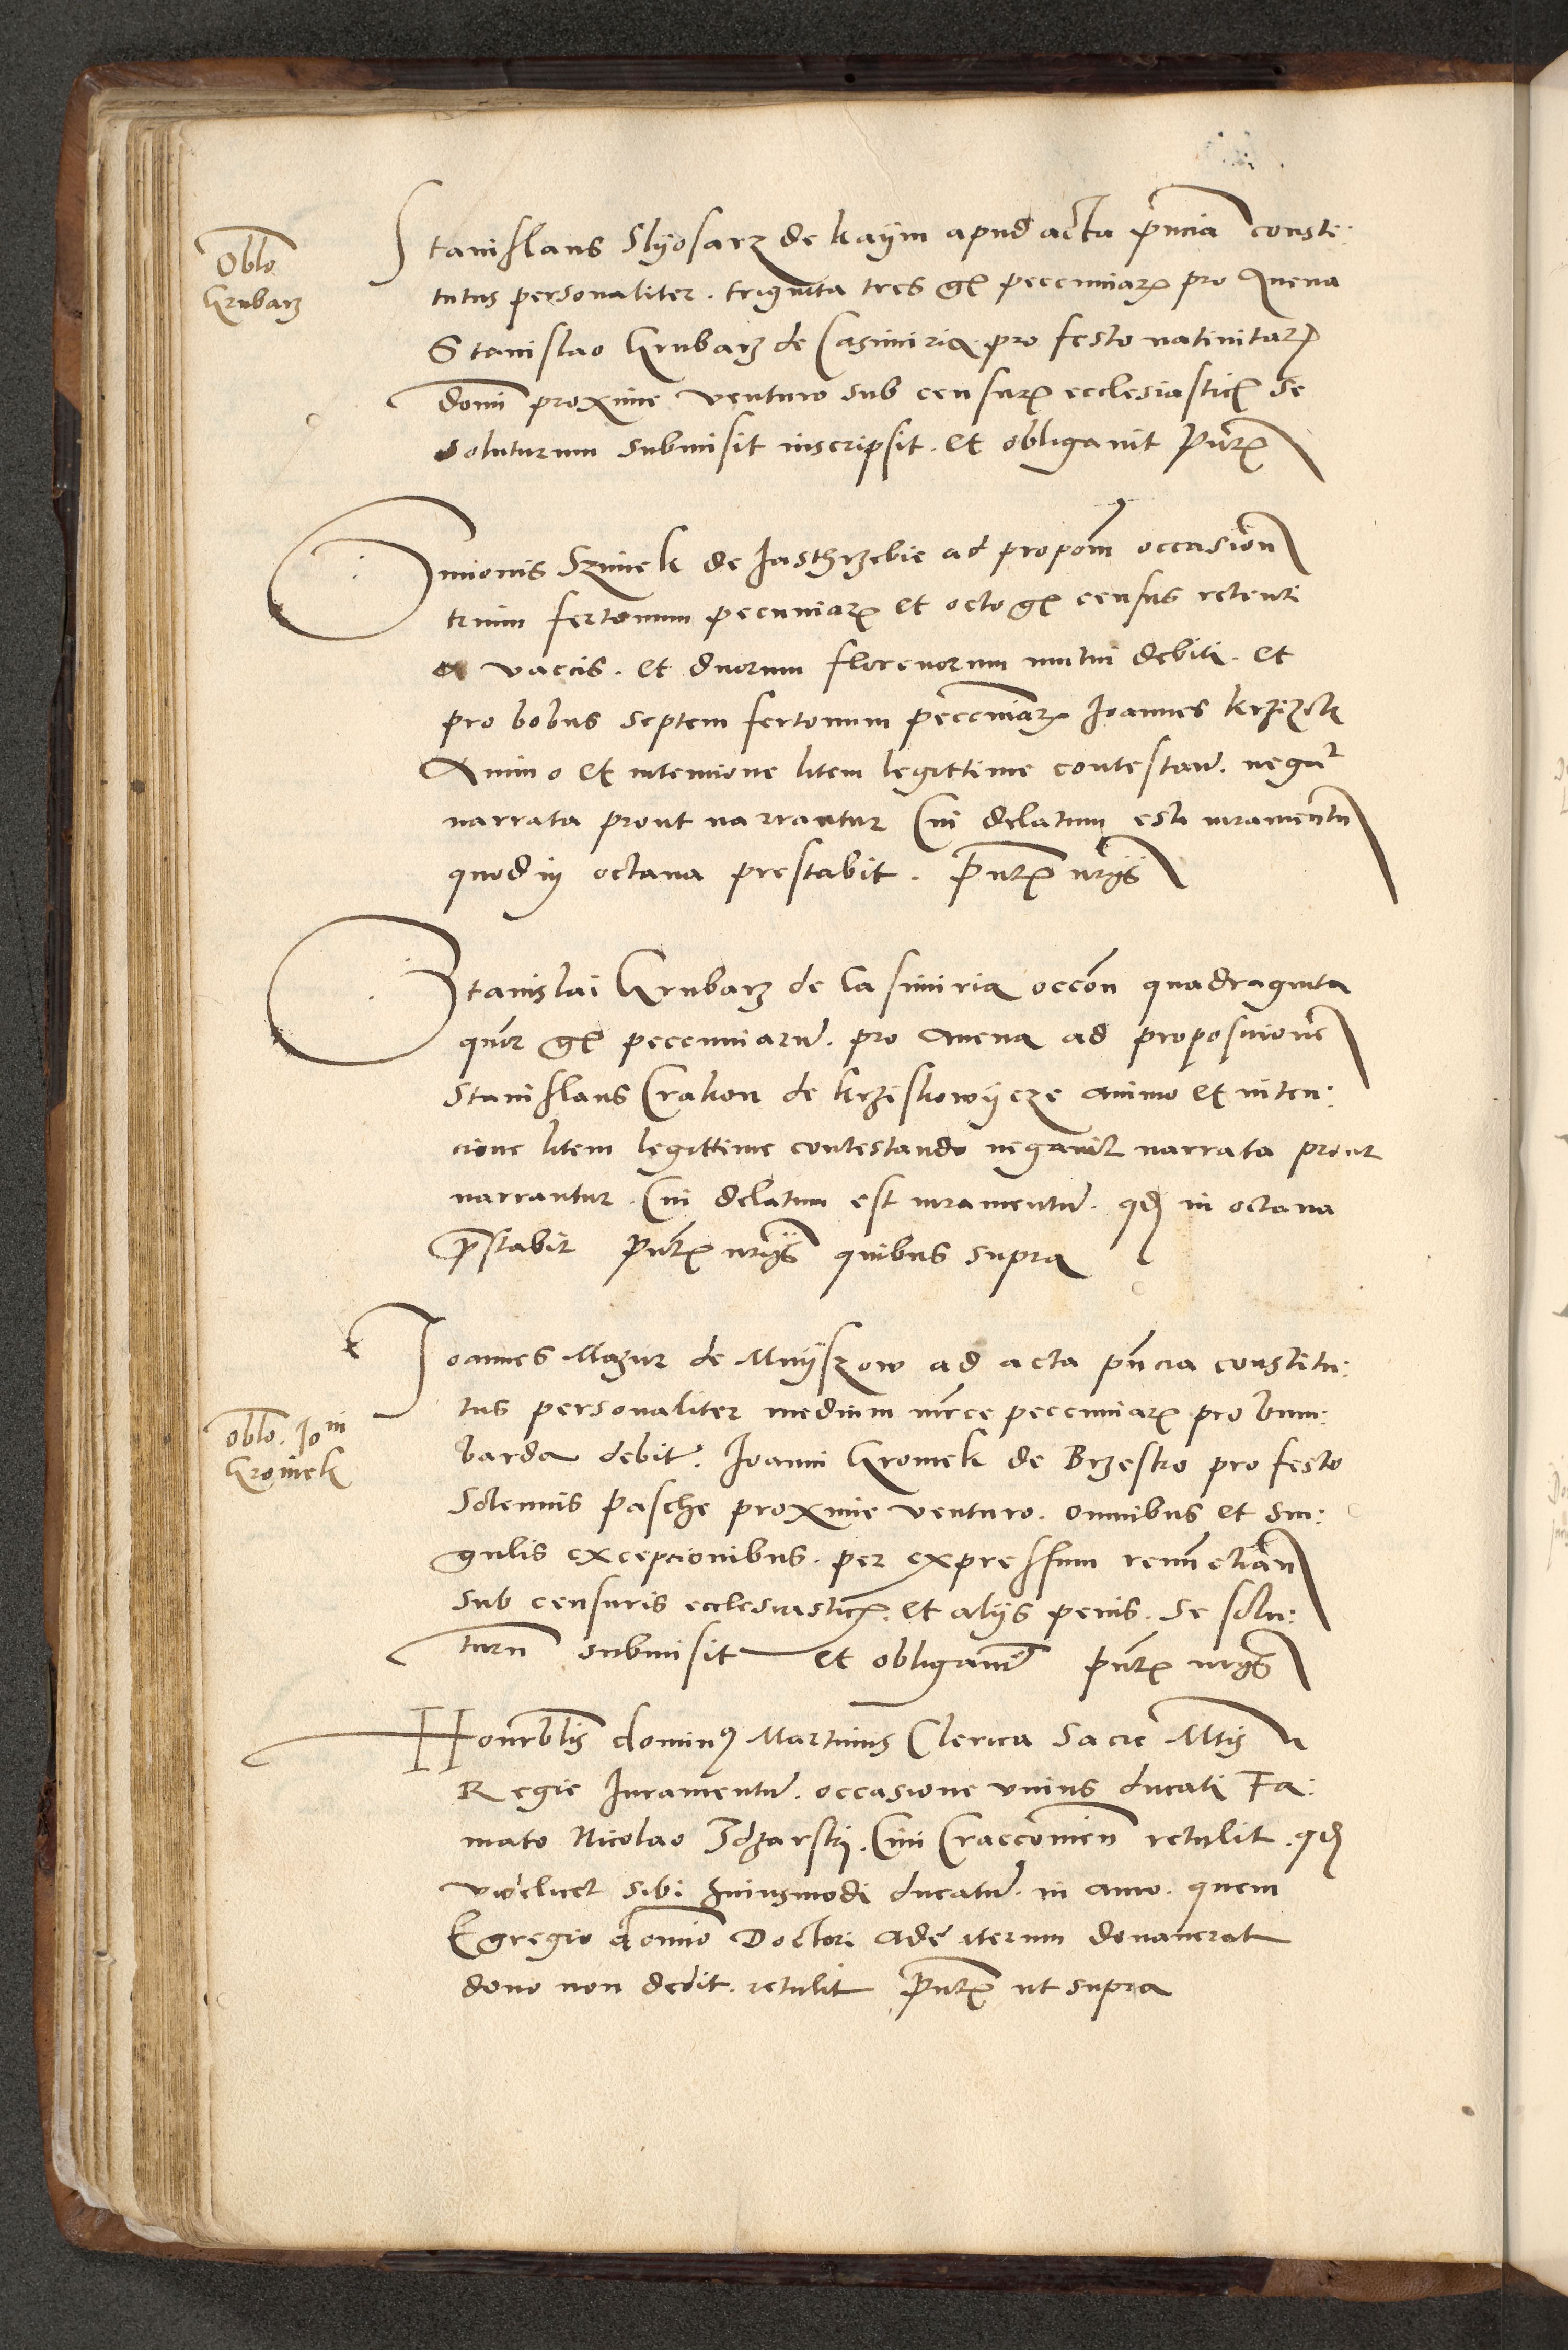 Oblo
Grubarz
Stanislaus Slyosarz de kaÿm apud acta pncia consti:
tutus personaliter. triginta tres gr peccuniar pro Auena
Stanislao Grubarz de Casimiria pro festo natiuitat
domi proxime venturo sub censur ecclesiastic se
soluturum submisit inscripsit. et obligauit Pntz
Simionis Szimek de Jasthrzebie ad propom occasion
trium fertonum pecuniar et octo gr census retenti
a vaccis. et duorum florenorum mutui debiti. et
pro bobus septem fertonum peccuniar Joannes
Animo et intentione litem legittime contestan. negt
narrata prout narrantur Cui delatum est iuramentu
quod in octaua prestabit. Pntz urgs
Stanislai Grubarz de Casimiria occon quadraginta
quor gr peccuniaru. pro auena ad propositione
Stanislaus Crakou de Krziskowÿcze animo et inten:
cione litem legittime contestando negauit narrata prout
narrantur. Cui delatum est iuramentu. qd in octaua
prstabit Pntz urgs quibus supra
Joannes Mazur de Mnÿszow ad acta pncia constitu:
oblo. Joni
Gromek
tus personaliter medium mrce peccuniar pro bom:
barda debit. Joanni Gromek de Brzesko pro festo
Solennis pasche proxime venturo. omnibus et sin:
gulis excepcionibus. per expressum renunctian
sub censuris ecclesiasticz. et alÿs penis. se solu:
turu submisit et obligauit Pntz urgs
Honorblis dominus Martinus Clerica Sacre Mtis
Regie Juramentu. occasione vnius ducati Fa:
mato Nicolao Zdzarski. Ciui Craccouien retulit. qd
videlicet sibi huiusmodi ducatu. in auro. quem
Egregio domino Doctori Ade iterum donauerat
dono non dedit. retulit Pntz ut supra